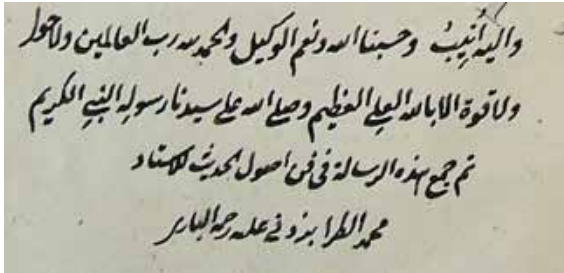 واليه أُنِيبُ وحسبنا الله ونعم الوكيل والحمد لله رب العالمين ولاحول
ولاقوة الا بالله العلي العظيم وصلى الله على سيدنا رسوله النبي الكريم
تم جمع هذه الرسالة فى فن اصول الحديث للاستاد
محمد الطرابزونى عليه رحمة البارى